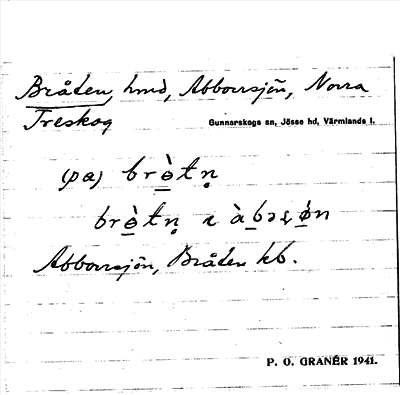 Bråten, hmd, Abborrsjön, Norra
Treskog
Gunnarskogs sn, Jösse hd, Värmlands l.
(pa) brò̱tn̥
brò̱tn̥ ɩ àb̲əʂó̱n
Abborrsjön, Bråten kb.
P. O. GRANÉR 1941.